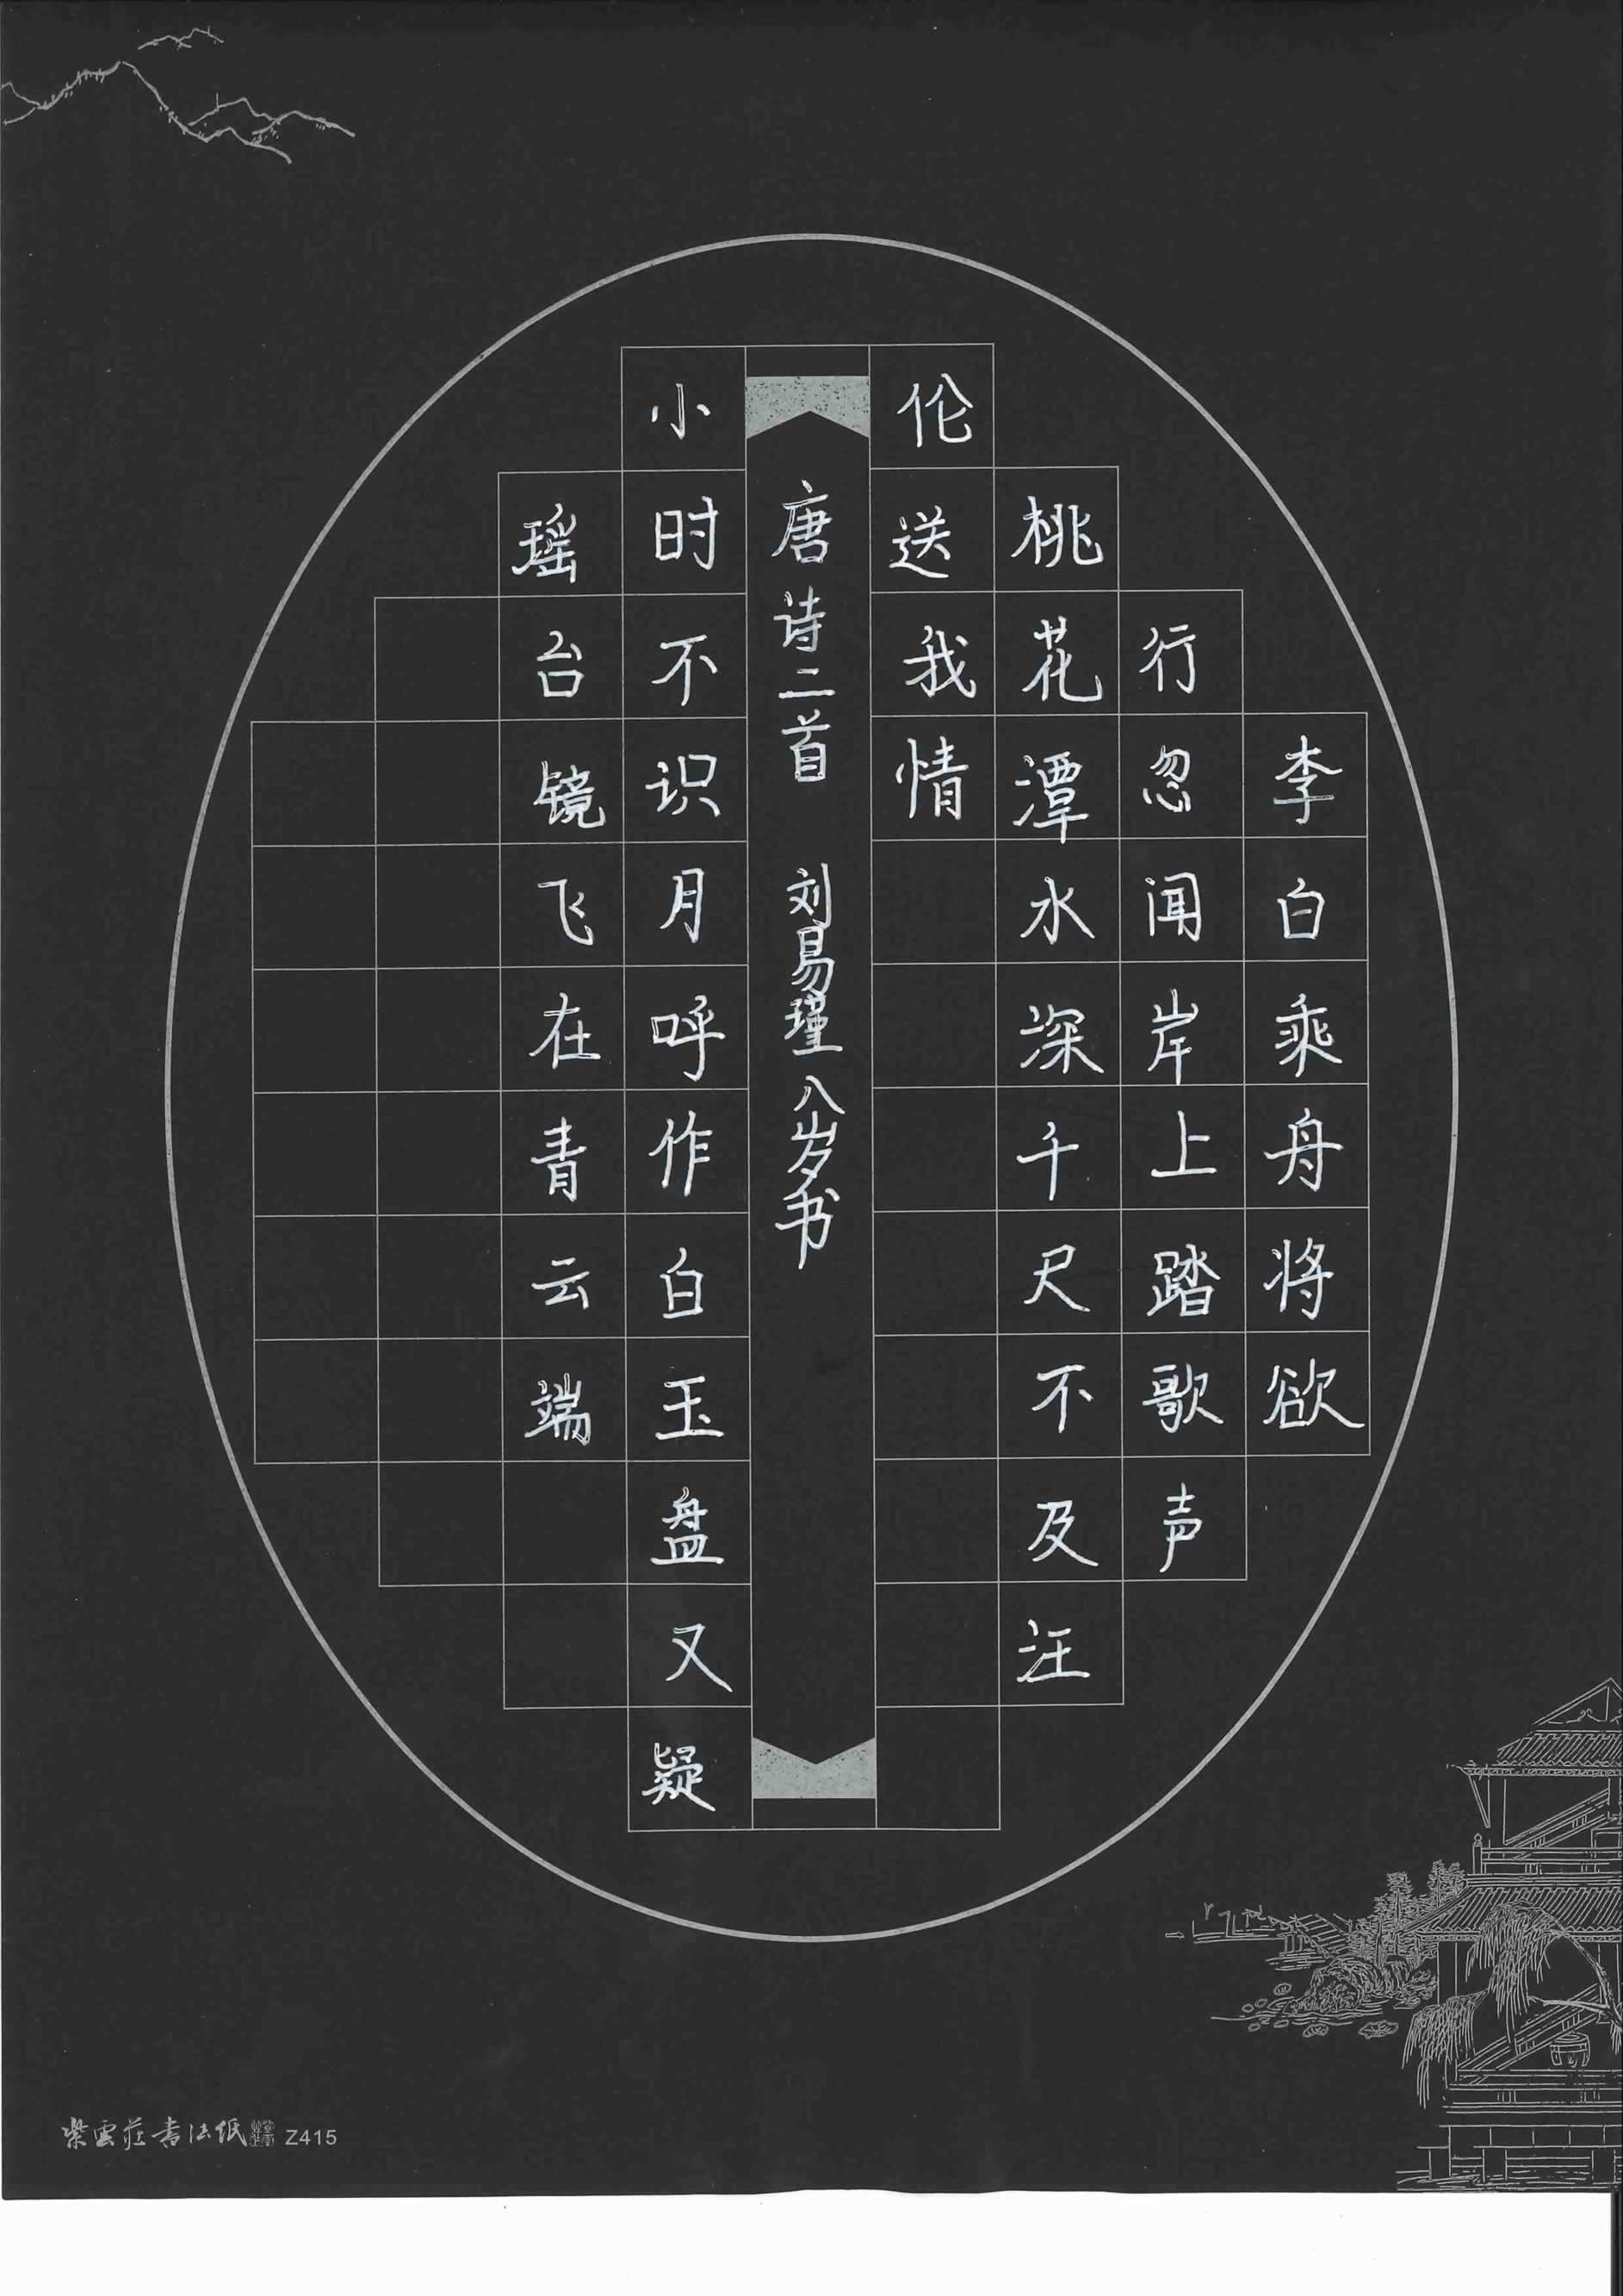 李白乘舟将欲
行忽闻岸上踏歌声
桃花潭水深千尺不及汪
伦送我情
唐诗二首 刘易瑾八岁书
小时不识月呼作白玉盘又疑
瑶台镜飞在青云端
紫雲莊書法纸 Z415